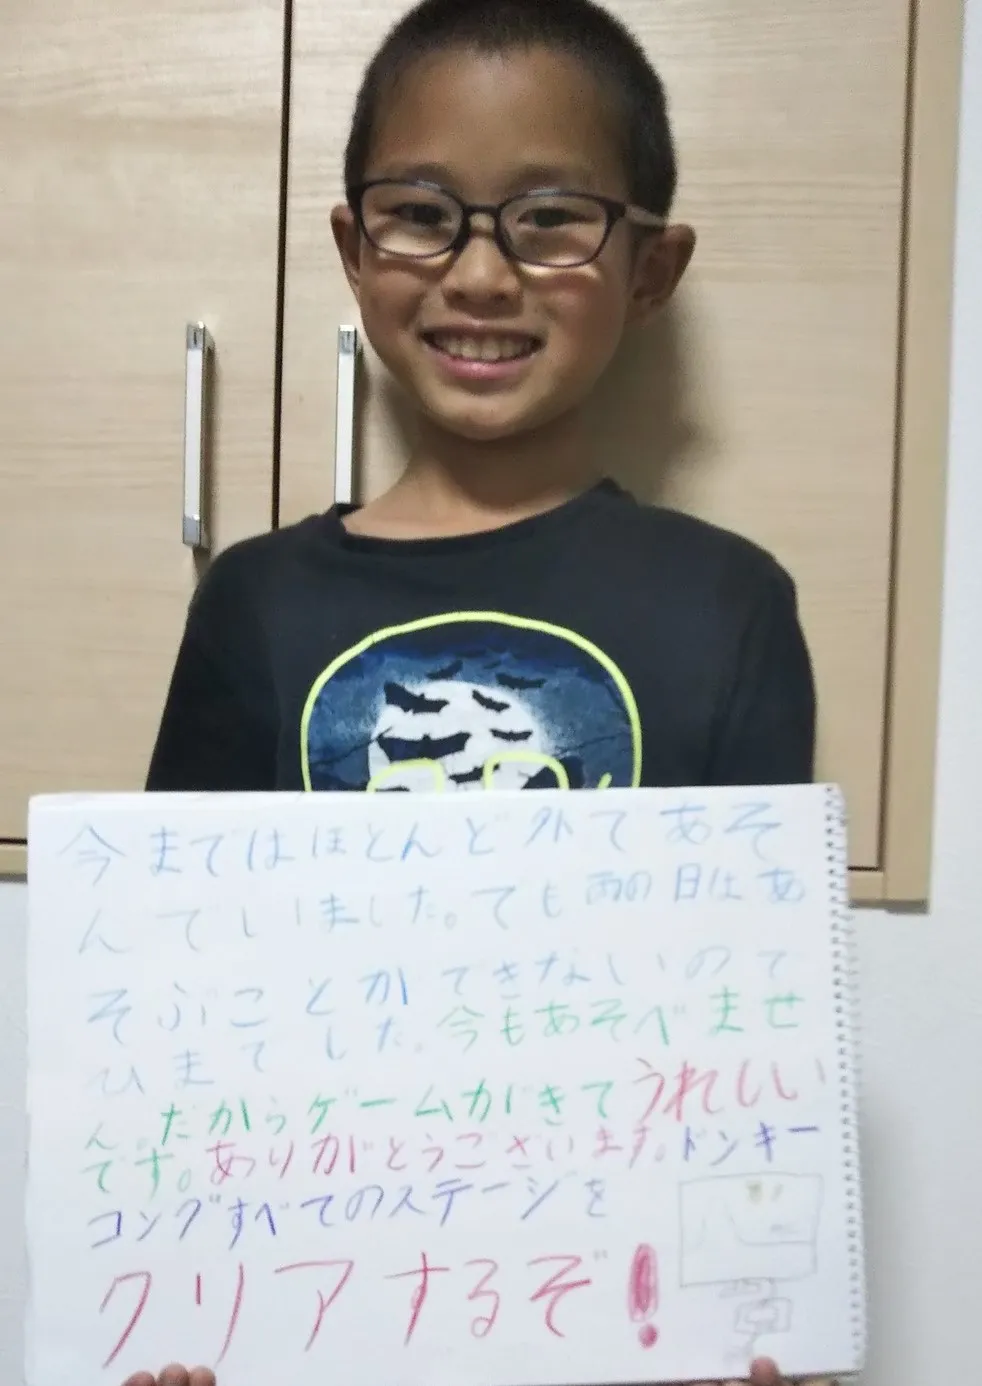 今まではほとんど外であそ
んでいました。でも雨の日はあ
そぶことができないのて
ひまてした。今もあそべませ
ん。だからゲームがきてうれしい
です。ありがとうございます。ドンキー
コングすべてのステージを
クリアするぞ!